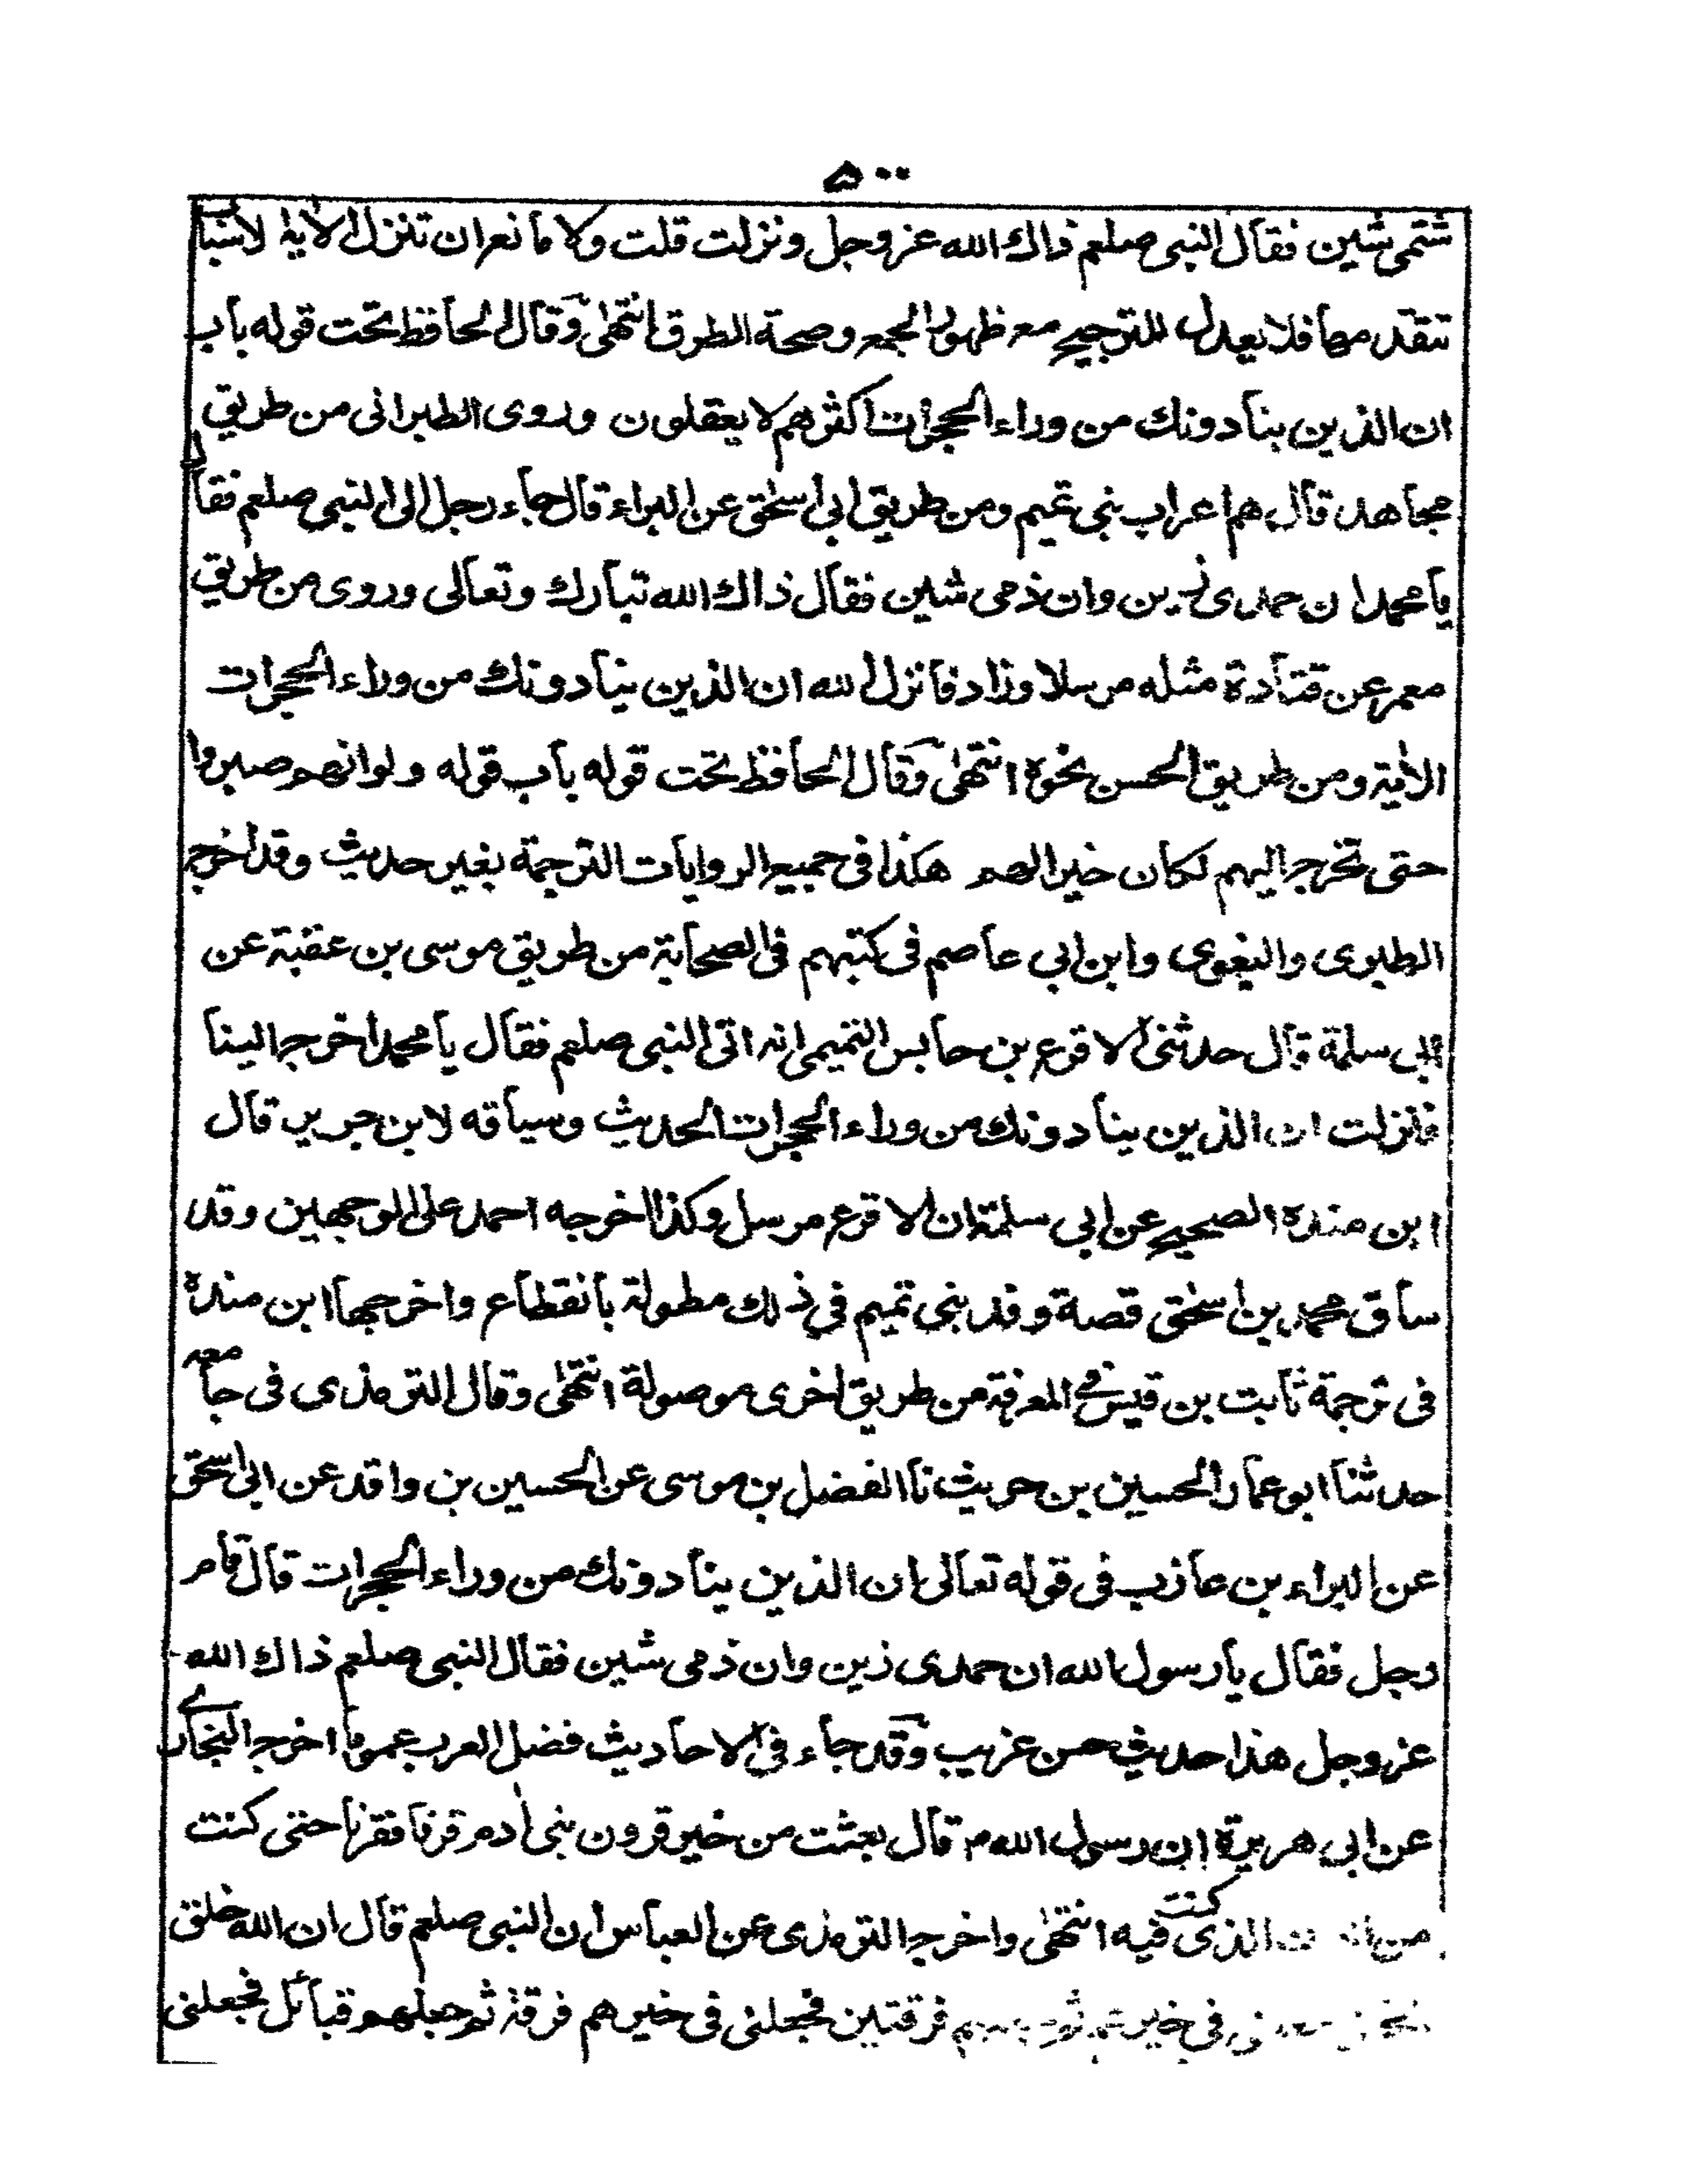 ۵۰۰
شتمي شين فقال النبي صلعم ذاك الله عز وجل ونزلت قلت ولا مانع ان تنزل الآية لاسباب
تتقدمها فلا يعدل للترجيح مع ظهور الجمع وصحة الطرق انتهى وقال الحافظ تحت قوله باب
ان الذين ينادونك من وراء الحجرات اكثرهم لا يعقلون وروى الطبراني من طريق
مجاهد قال هم اعراب بني تميم ومن طريق ابي اسحق عن البراء قال جاء رجل الى النبي صلعم فقال
يا محمد ان حمدي زين وان ذمي شين فقال ذاك الله تبارك وتعالى وروى من طريق
معمر عن قتادة مثله مرسلا وزاد فانزل الله ان الذين ينادونك من وراء الحجرات
الآية ومن طريق الحسن نحوه انتهى وقال الحافظ تحت قوله باب قوله ولو انهم صبروا
حتى تخرج اليهم لكان خيرا لهم هكذا في جميع الروايات الترجمة بغير حديث وقد اخرج
الطبري والبغوي وابن ابي عاصم في كتبهم في الصحابة من طريق موسى بن عقبة عن
ابي سلمة قال حدثني الاقرع بن حابس التميمي انه اتى النبي صلعم فقال يا محمد اخرج الينا
فنزلت ان الذين ينادونك من وراء الحجرات الحديث وسياقه لابن جرير قال
ابن مندة الصحيح عن ابي سلمة ان الاقرع مرسل وكذا اخرجه احمد على الوجهين وقد
ساق محمد بن اسحق قصة وفد بني تميم في ذلك مطولة بانقطاع واخرجها ابن مندة
في ترجمة ثابت بن قيس في المعرفة من طريق اخرى موصولة انتهى وقال الترمذي في جامعه
حدثنا ابو عمار الحسين بن حريث نا الفضل بن موسى عن الحسين بن واقد عن ابي اسحق
عن البراء بن عازب في قوله تعالى ان الذين ينادونك من وراء الحجرات قال قام
رجل فقال يا رسول الله ان حمدي زين وان ذمي شين فقال النبي صلعم ذاك الله
عز وجل هذا حديث حسن غريب وقد جاء في الاحاديث فضل العرب عموما اخرج البخاري
عن ابي هريرة ان رسول الله م قال بعثت من خير قرون بني آدم قرنا فقرنا حتى كنت
من الذي كنت فيه انتهى واخرج الترمذي عن العباس ان النبي صلعم قال ان الله خلق
في خير فرقتين فجعلني في خيرهم فرقة ثم جعلهم قبائل فجعلني